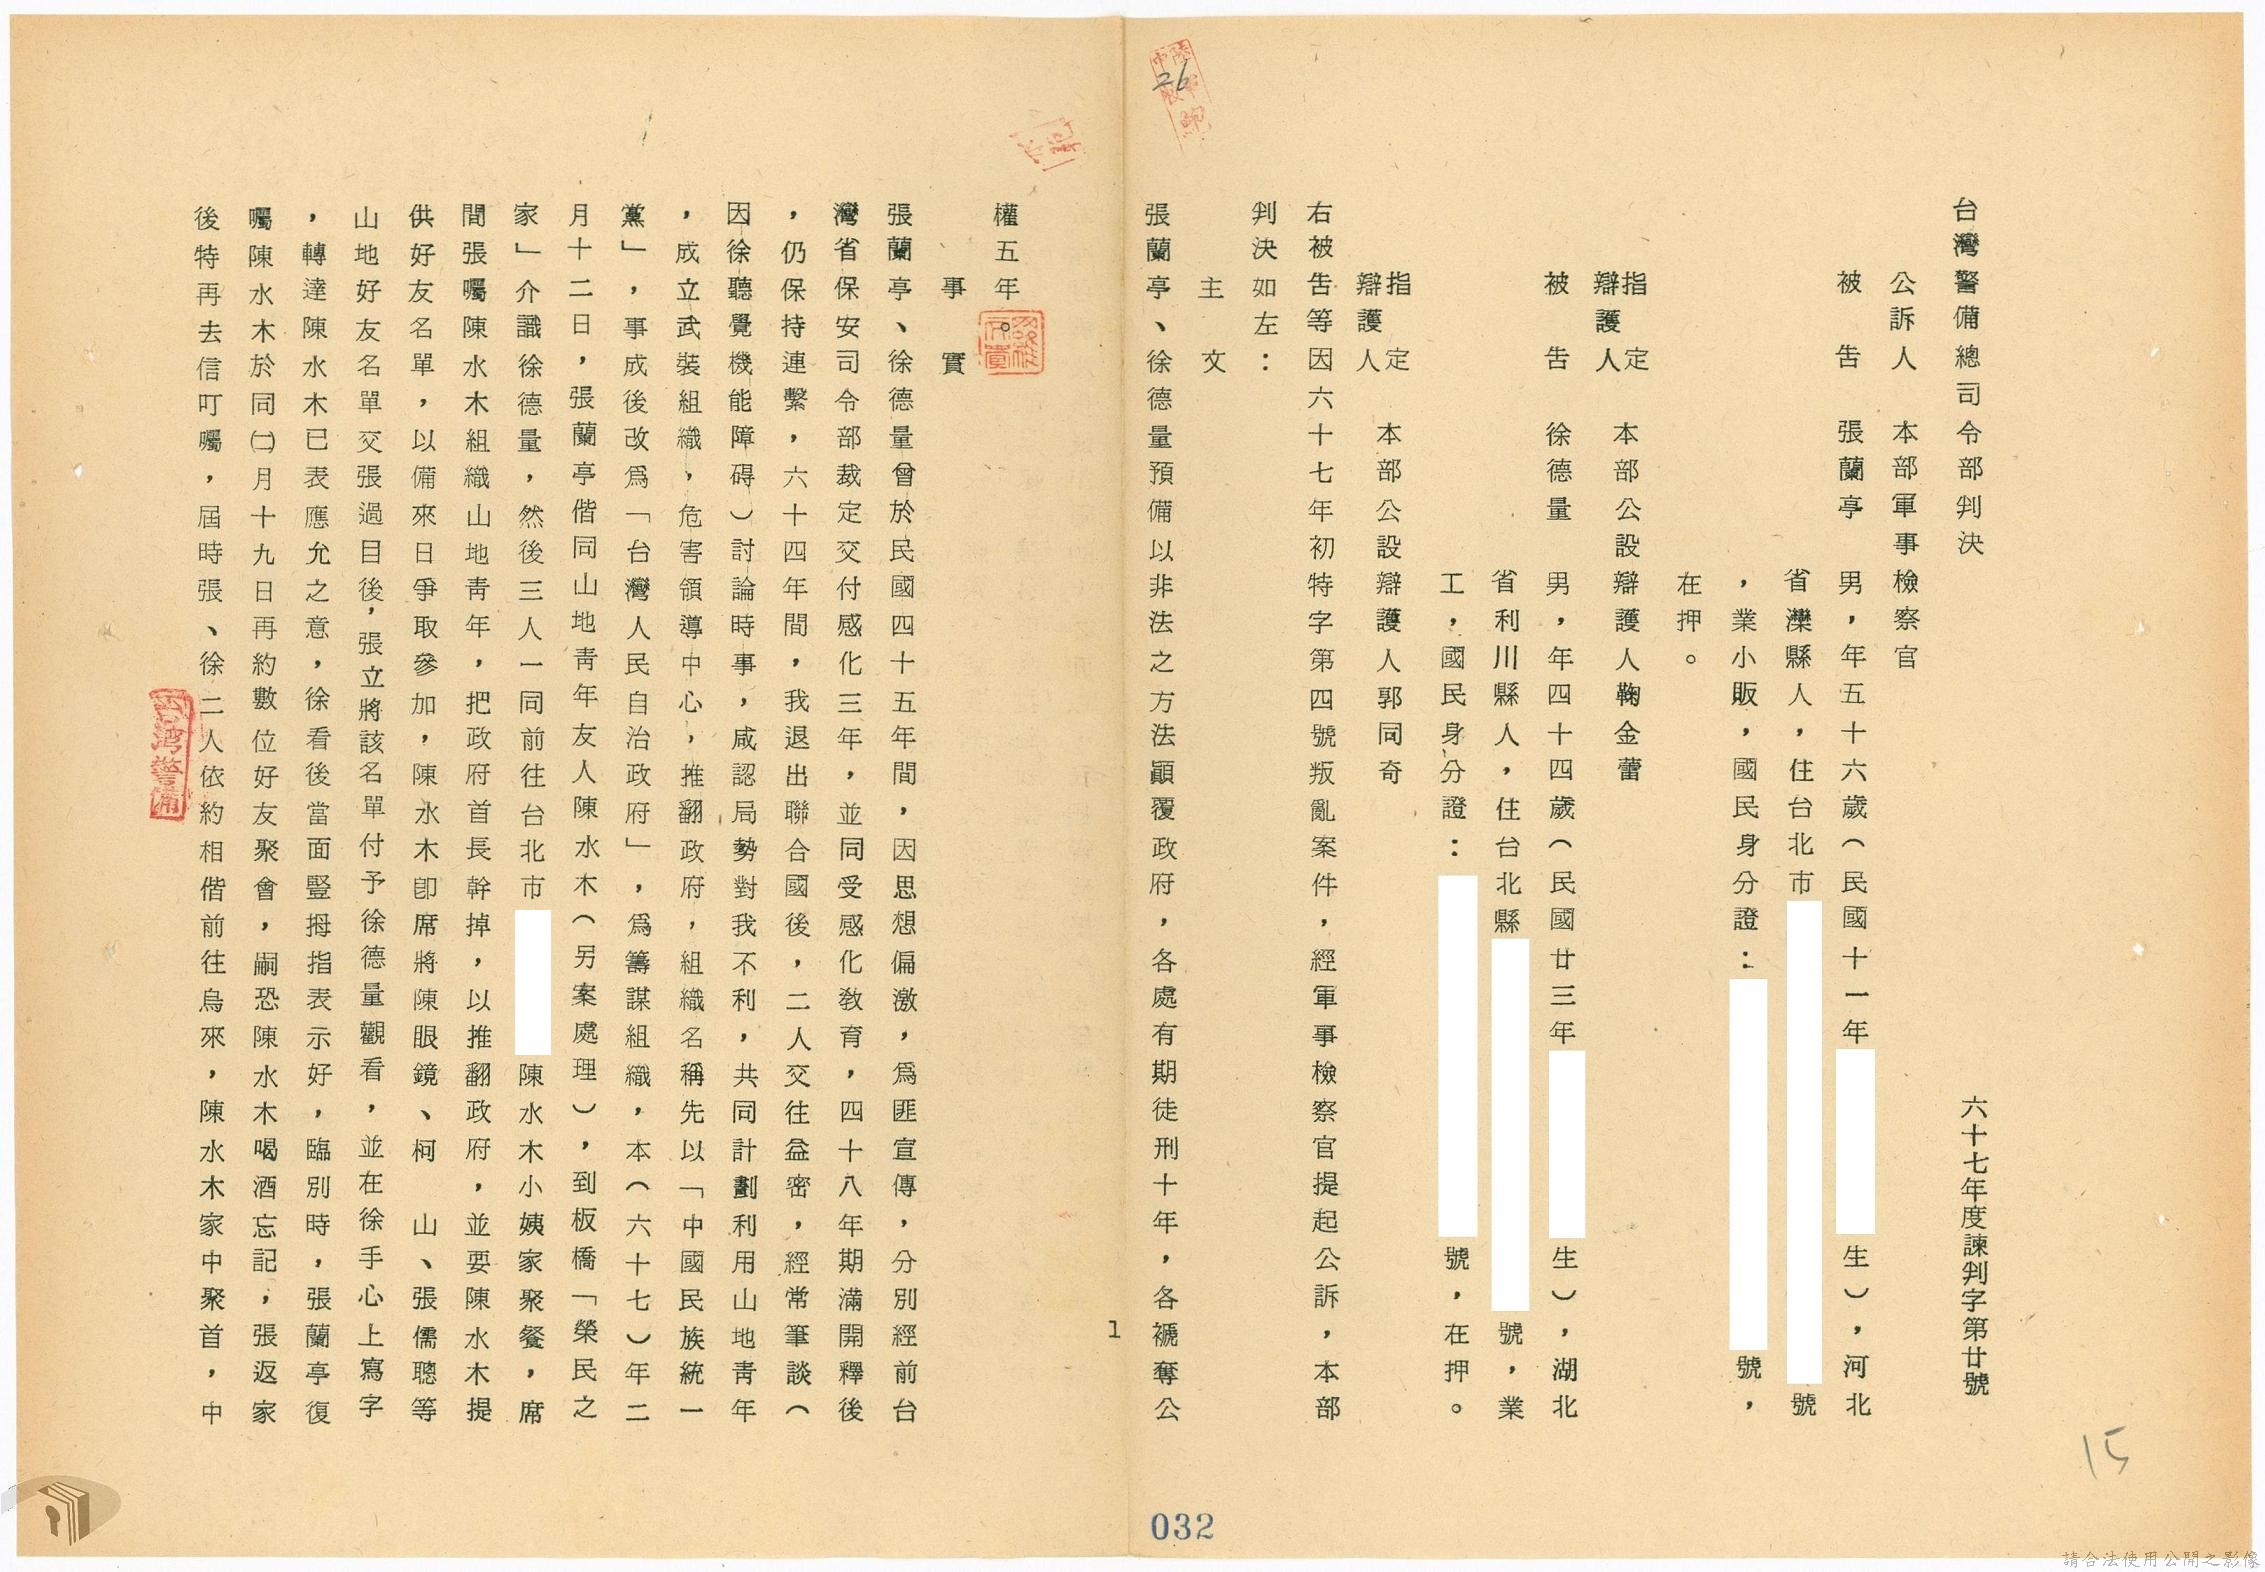 台灣警備總司令部判決
六十七年度諫判字第廿號
公訴人 本部軍事檢察官
被告 張蘭亭 男，年五十六歲（民國十一年 生），河北
省灤縣人，住台北市 號
，業小販，國民身分證： 號，
在押。
指定辯護人 本部公設辯護人鞠金蕾
被告 徐德量 男，年四十四歲（民國廿三年 生），湖北
省利川縣人，住台北縣 號，業
工，國民身分證： 號，在押。
指定辯護人 本部公設辯護人郭同奇
右被告等因六十七年初特字第四號叛亂案件，經軍事檢察官提起公訴，本部
判決如左：
主文
張蘭亭、徐德量預備以非法之方法顚覆政府，各處有期徒刑十年，各褫奪公
權五年。
事實
張蘭亭、徐德量曾於民國四十五年間，因思想偏激，爲匪宣傳，分別經前台
灣省保安司令部裁定交付感化三年，並同受感化敎育，四十八年期滿開釋後
，仍保持連繫，六十四年間，我退出聯合國後，二人交往益密，經常筆談（
因徐聽覺機能障碍）討論時事，咸認局勢對我不利，共同計劃利用山地靑年
，成立武裝組織，危害領導中心，推翻政府，組織名稱先以「中國民族統一
黨」，事成後改爲「台灣人民自治政府」，爲籌謀組織，本（六十七）年二
月十二日，張蘭亭偕同山地靑年友人陳水木（另案處理），到板橋「榮民之
家」介識徐德量，然後三人一同前往台北市 陳水木小姨家聚餐，席
間張囑陳水木組織山地靑年，把政府首長幹掉，以推翻政府，並要陳水木提
供好友名單，以備來日爭取參加，陳水木卽席將陳眼鏡、柯 山、張儒聰等
山地好友名單交張過目後，張立將該名單付予徐德量觀看，並在徐手心上寫字
，轉達陳水木已表應允之意，徐看後當面豎拇指表示好，臨別時，張蘭亭復
囑陳水木於同㈡月十九日再約數位好友聚會，嗣恐陳水木喝酒忘記，張返家
後特再去信叮囑，屆時張、徐二人依約相偕前往烏來，陳水木家中聚首，中
1
26
15
032
台灣警備
請合法使用公開之影像